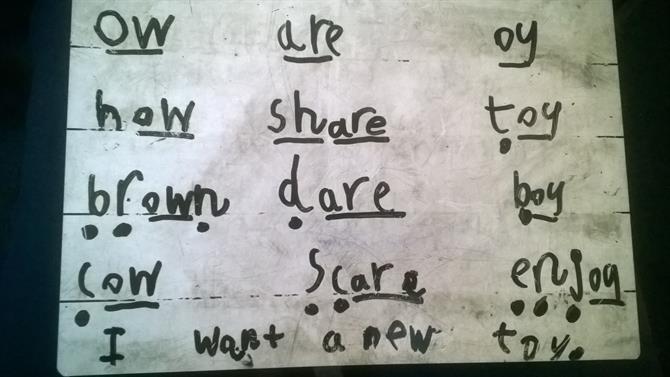 ow are oy
how share toy
brown dare boy
cow scare enjoy
I want a new toy.